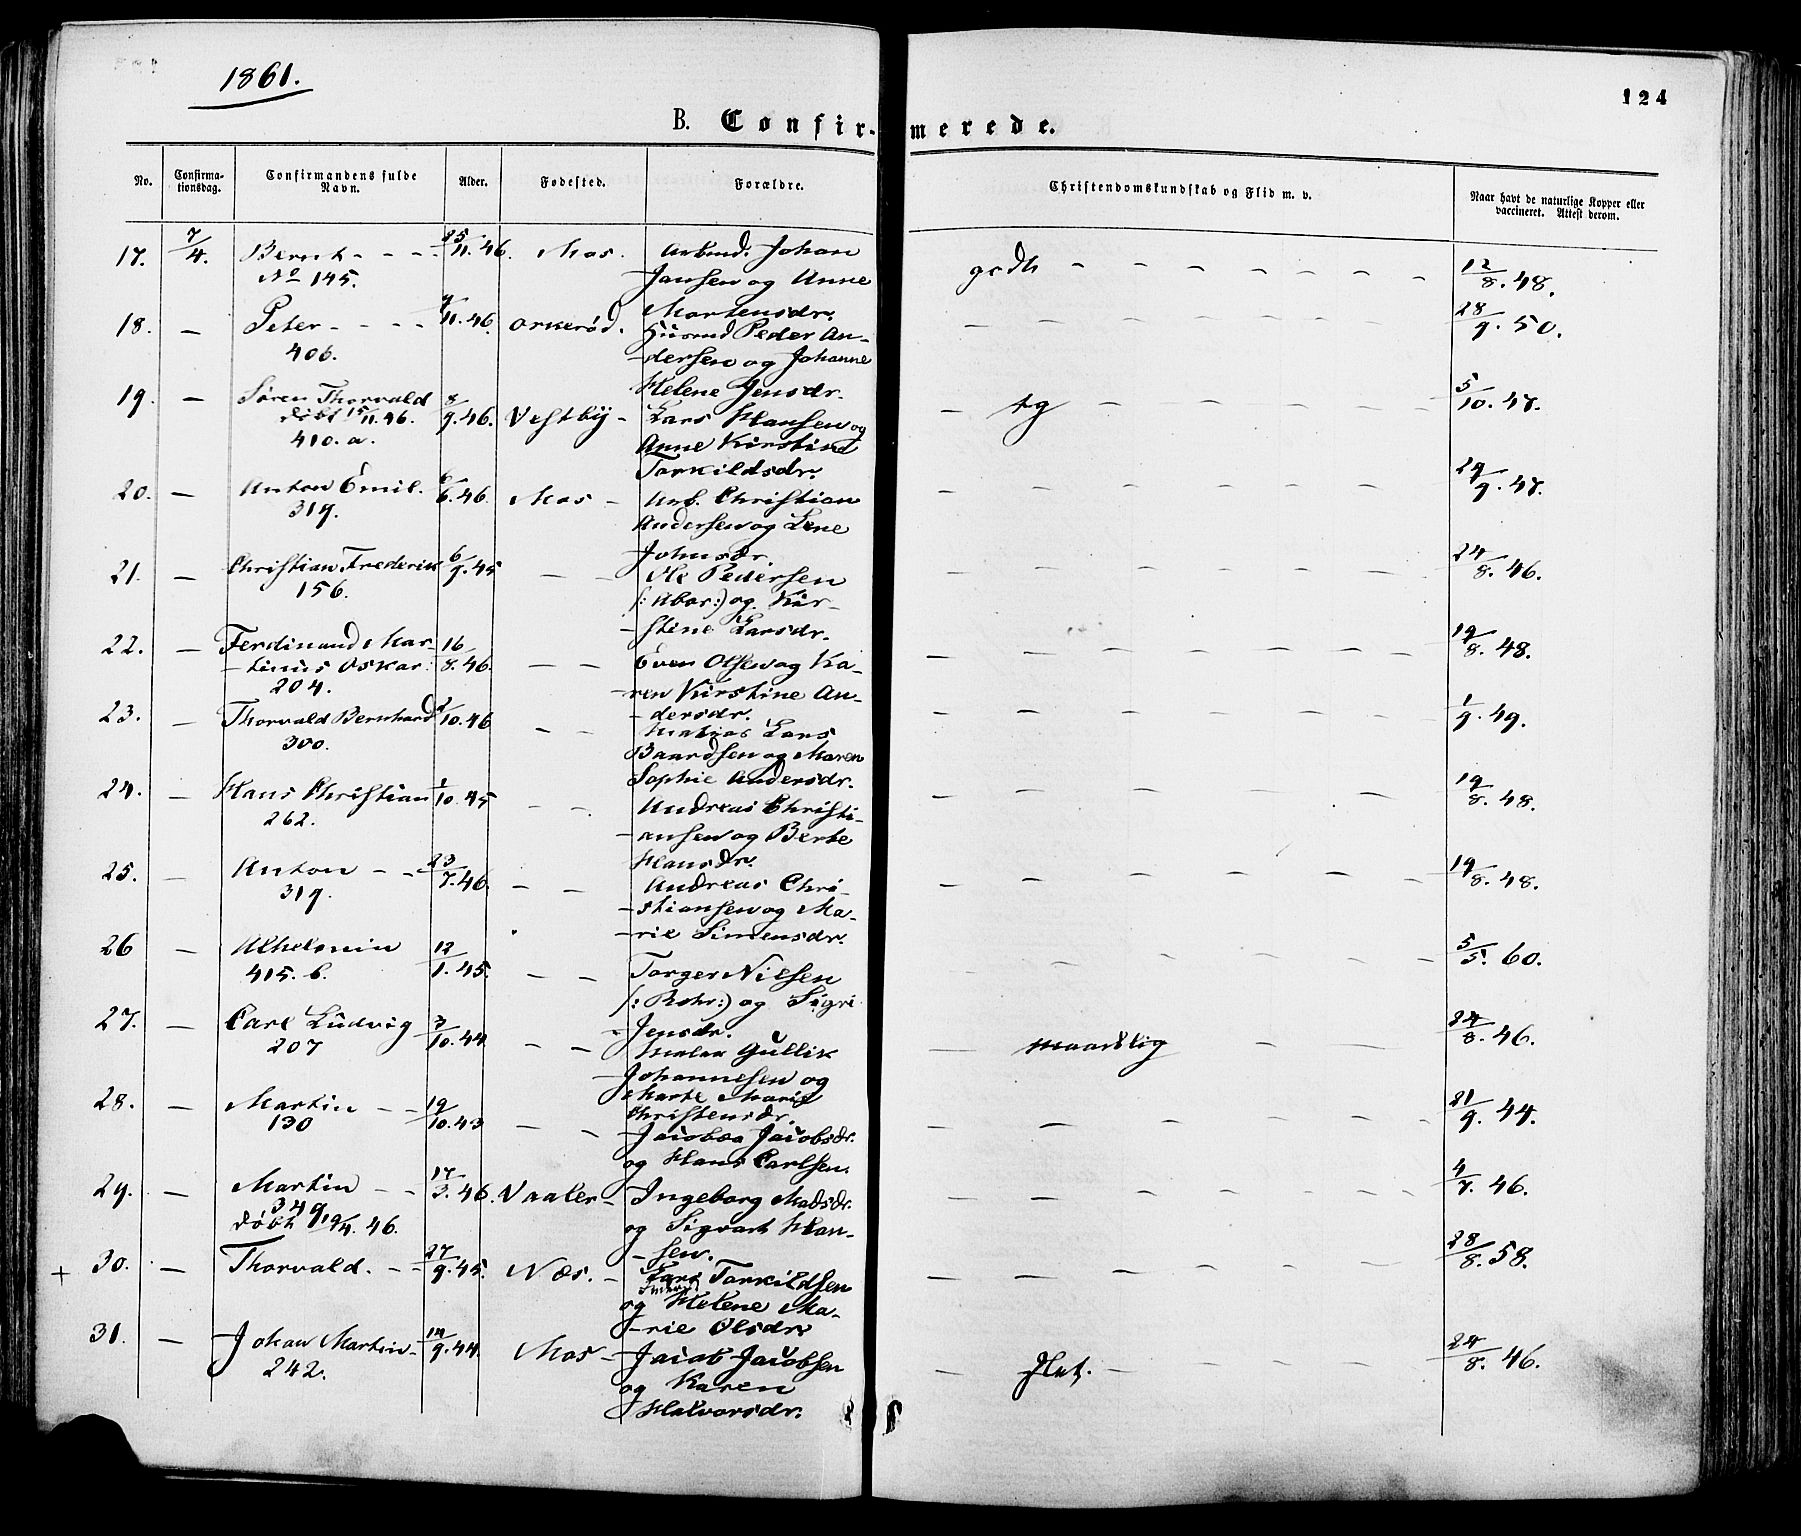 1861.
124
B. Confir- merede.
No. Confirma- tionsdag. Confirmandens fulde Navn. Alder. Fødested. Forældre. Christendomskundskab og Flid m. v. Naar havt de naturlige Kopper eller vaccineret. Attest derom.
17. 7/4. Bernt - - - 25/11. 46. Mos. Arbmd. Johan godt - - - - - - - 12/8. 48.
No 145. Jansen og Anne
Martensdr.
18. - Peter - - - - 4/11. 46. Orkerød. Husmd Peder An- - - - - - - - 28/9. 50.
406. -dersen og Johanne
Helene Jensdr.
19. - Søren Thorvald 8/9. 46. Vestby - Lars Hansen og - tg - - - - - - 5/10. 47.
døbt 15/11. 46. Anne Kirstine
410. a. Torkildsdr.
20. - Anton Emil. 6/6. 46. Mos - Arb. Christian - - - - - - - 29/9. 47.
319. Andersen og Lene
Johnsdr.
21. - Christian Frederik 6/9. 45 - - Ole Pedersen - - - - - - - 24/8. 46.
156. (: Abor :) og Kir-
-stine Larsdr.
22. - Ferdinand Mar- 16/8. 46. - - Even Olsen og Ka- - - - - - - - 19/8. 48.
-tinus Oskar. -ren Kirstine An-
204. -dersdr.
23. - Thorvald Bernhard 2/10. 46 - - Matros Lars - - - - - - - 1/9. 49.
300. Baardsen og Maren
Sophie Andersdr.
24. - Hans Christian 1/10. 45 - - Andreas Christi- - - - - - - 19/8. 48.
262. -ansen og Berte
Hansdr.
25. - Anton - - 23/7. 46. - - Andreas Chri- - - - - - - - 19/8. 48.
319. -stiansen og Ma-
-rie Simensdr.
26 - Alhelmin 12/1. 45. - - Torger Nielsen - - - - - - 5/5. 60.
415. b. (: Rohr :) og Sigri
Jensdr.
27. - Carl Ludvig 3/10. 44 - - Maler Gullik - maadelig - - - 24/8. 46.
207 Johannesen og
Marte Marie
Christensdr.
28. - Martin - - 19/10. 43 - - Jacobea Jacobsdr. - - - - - - - 21/9. 44.
130 og Hans Carlsen.
29. - Martin - - 17/3. 46. Vaaler - Ingeborg Madsdr. - - - - - - - 4/7. 46.
349 og Sigvart Han-
døbt 19/4. 46. -sen.
+ 30. - Thorvald. - - 27/9. 45. Næs. - Lars Torkildsen - - - - - - - 28/8. 58.
og Helene Ma-
-rie Olsdr.
31. - Johan Martin - 14/9. 44. Mos - Jacob Jacobsen - slet. - - - - - - 24/8. 46.
242. og Karen
Halvorsdr.